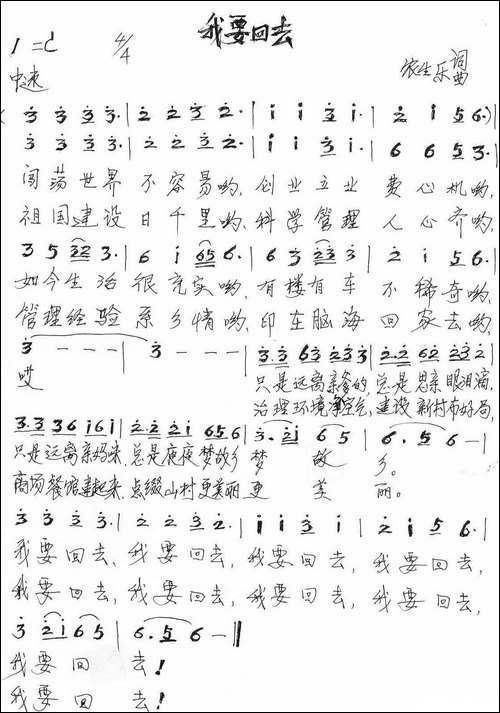 我要回去
1=C 4/4
中速 农生乐词曲
(3 3 3 3·| 2 2 3 2·| i i 3 i·| 2 i 5 6·)|
3 3 3 3·| 2 2 3 2·| i i 3 i·| 6 6 5 3·|
闯荡世界 不容易哟, 创业立业 费心机哟,
祖国建设 日千里哟, 科学管理 人心齐哟,
3 5 32 3·| 6 i 65 6·| 6 3 23 3·| 2 i 5 6·|
如今生活 很充实哟, 有楼有车 不稀奇哟,
管理经验 系乡情哟, 印在脑海 回家去哟,
3 - - -| 3 - - -| 3·3 63 233| 2·2 62 232|
哎 只是远离亲爹的, 总是思亲眼泪滴,
治理环境净空气, 建设新村布好局,
3·3 36 i6i| 2·2 2i 656| 3·2i 6 5| 6·5 6 -|
只是远离亲妈来, 总是夜夜梦故乡 梦 故 乡。
商场餐馆建起来, 点缀山村更美丽 更 美 丽。
3 3 3 3·| 2 2 3 2·| i i 3 i| 2 i 5 6·|
我要回去, 我要回去, 我要回去, 我要回去,
我要回去, 我要回去, 我要回去, 我要回去,
3 2i 65| 6·5 6 -‖
我要回 去!
我要回 去!